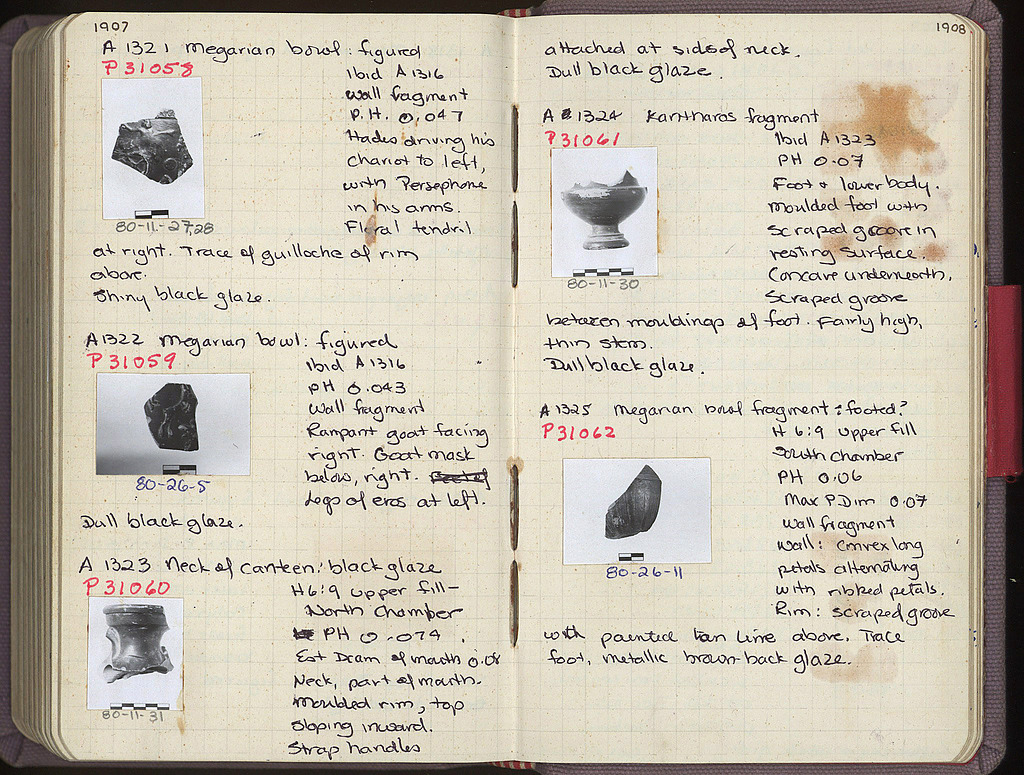 1907
A 1321 Megarian bowl: figured
P 31058
Ibid A 1316
Wall fragment
P.H. 0.047
Hades driving his
chariot to left,
with Persephone
in his arms.
Floral tendril
80-11-27,28
at right. Trace of guilloche of rim
above.
Shiny black glaze.
A 1322 Megarian bowl: figured
P 31059
Ibid A 1316
PH 0.043
Wall fragment
Rampant goat facing
right. Goat mask
below, right.
Legs of eros at left.
80-26-5
Dull black glaze.
A 1323 Neck of canteen: black glaze
P 31060
H 6:9 upper fill-
North Chamber
PH 0.074
Est Diam of mouth 0.08
Neck, part of mouth.
Moulded rim, top
sloping inward.
Strap handles
80-11-31
1908
attached at sides of neck.
Dull black glaze.
A 1324 Kantharos fragment
P 31061
Ibid A 1323
PH 0.07
Foot + lower body.
Moulded foot with
scraped groove in
resting surface.
Concave underneath,
Scraped groove
80-11-30
between mouldings of foot. Fairly high,
thin stem.
Dull black glaze.
A 1325 Megarian bowl fragment: footed?
P 31062
H 6:9 upper fill
South chamber
PH 0.06
Max P. Dim 0.07
Wall fragment
Wall: Convex long
petals alternating
with ribbed petals.
Rim: scraped groove
80-26-11
with painted tan line above. Trace
foot, metallic brown-back glaze.